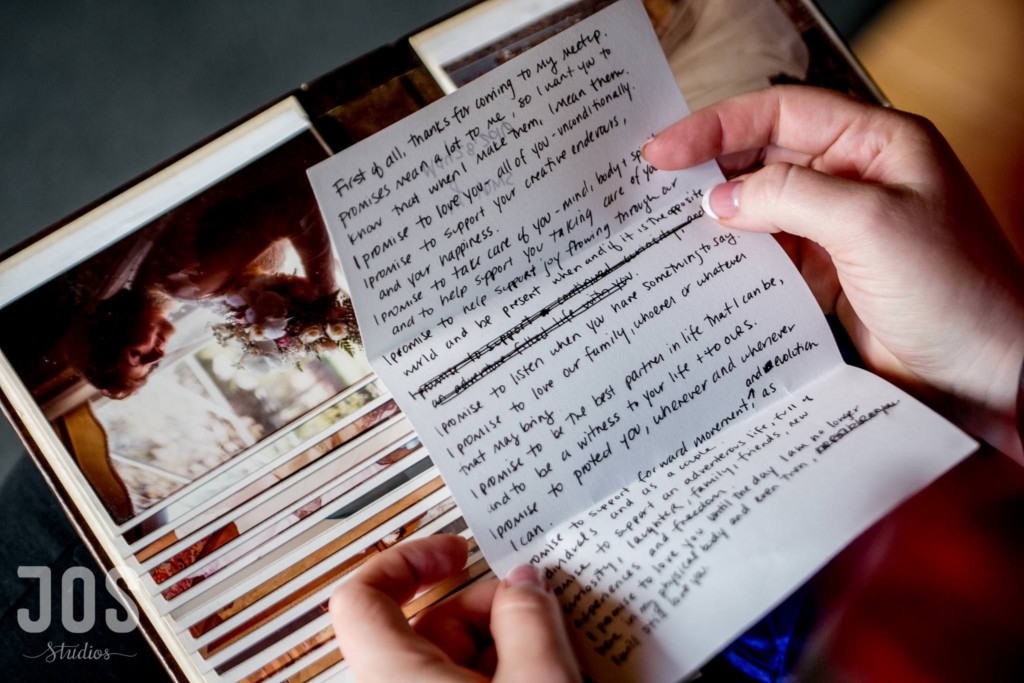 First of all, thanks for coming to my meetup.
promises mean a lot to me, so I want you to
know that when I make them, I mean them.
I promise to love you, all of you - unconditionally.
I promise to support your creative endeavors,
and your happiness.
I promise to take care of you - mind, body +
and to help support you taking care of
I promise to help support joy flowing through our
world and be present when and if it is the opposite
I promise to listen when you have something to say.
I promise to love our family, whoever or whatever
that may bring
I promise to be the best partner in life that I can be,
and to be a witness to your life + to ours.
I promise to protect you, wherever and whenever
I can.
to support forward movement, and evolution as
and as a whole
to support an adventurous life, full of
laughter, family, friends, new
experiences and freedom.
I promise to love you until the day I am no longer
in my physical body and even then,
love you.
JOS
Studios